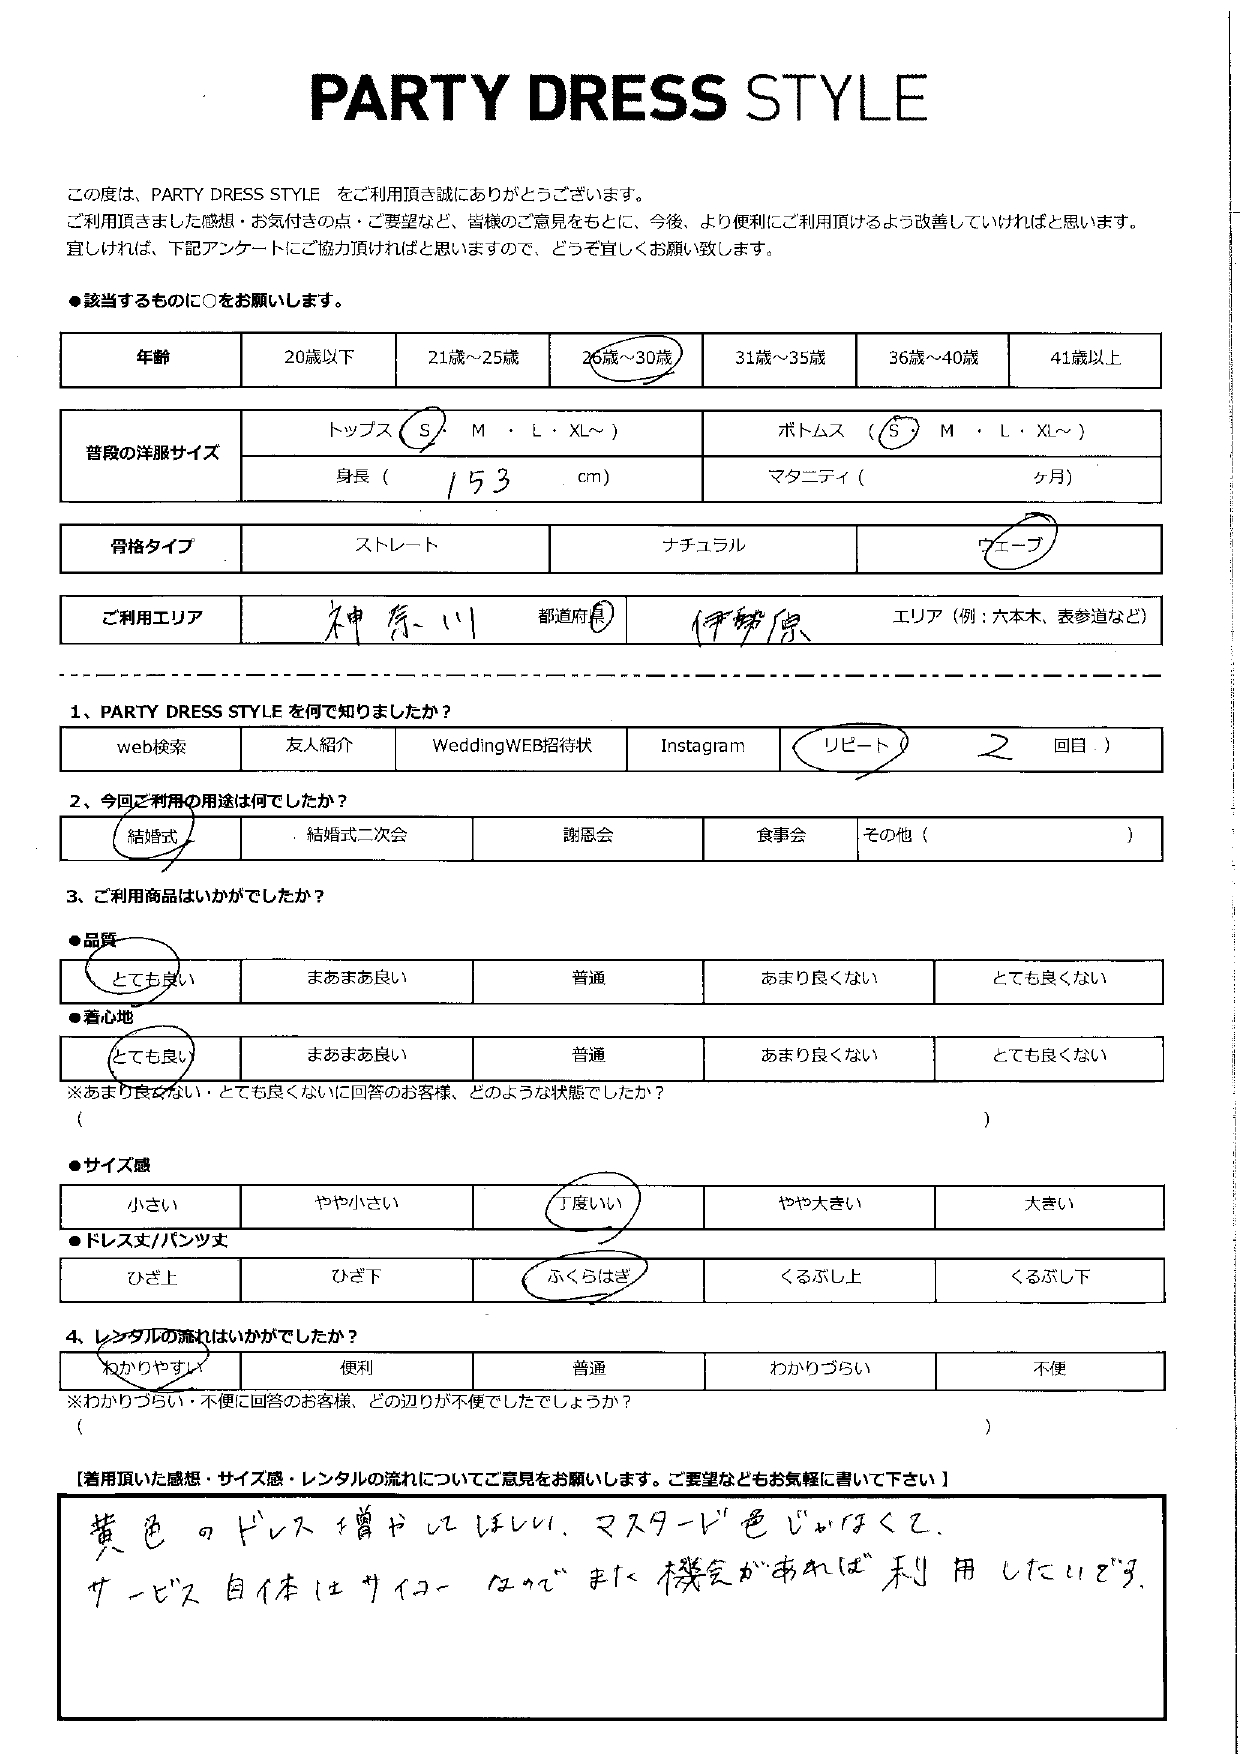 PARTY DRESS STYLE
この度は、PARTY DRESS STYLE をご利用頂き誠にありがとうございます。
ご利用頂きました感想・お気付きの点・ご要望など、皆様のご意見をもとに、今後、より便利にご利用頂けるよう改善していければと思います。
宜しければ、下記アンケートにご協力頂ければと思いますので、どうぞ宜しくお願い致します。
●該当するものに○をお願いします。
年齢 20歳以下 21歳～25歳 26歳～30歳 31歳～35歳 36歳～40歳 41歳以上
普段の洋服サイズ トップス (S・ M ・ L・ XL～ ) ボトムス (S・ M ・ L・ XL～ )
身長 ( 153 cm) マタニティ ( ヶ月)
骨格タイプ ストレート ナチュラル ウェーブ
ご利用エリア 神奈川 都道府県 伊勢原 エリア（例：六本木、表参道など）
1、PARTY DRESS STYLE を何で知りましたか？
web検索 友人紹介 WeddingWEB招待状 Instagram リピート ( 2 回目 )
2、今回ご利用の用途は何でしたか？
結婚式 結婚式二次会 謝恩会 食事会 その他 ( )
3、ご利用商品はいかがでしたか？
●品質
とても良い まあまあ良い 普通 あまり良くない とても良くない
●着心地
とても良い まあまあ良い 普通 あまり良くない とても良くない
※あまり良くない・とても良くないに回答のお客様、どのような状態でしたか？
( )
●サイズ感
小さい やや小さい 丁度いい やや大きい 大きい
●ドレス丈/パンツ丈
ひざ上 ひざ下 ふくらはぎ くるぶし上 くるぶし下
4、レンタルの流れはいかがでしたか？
わかりやすい 便利 普通 わかりづらい 不便
※わかりづらい・不便に回答のお客様、どの辺りが不便でしたでしょうか？
( )
【着用頂いた感想・サイズ感・レンタルの流れについてご意見をお願いします。ご要望などもお気軽に書いて下さい 】
黄色のドレス増やしてほしい、マスタード色じゃなくて。
サービス自体はサイコーなのでまた機会があれば利用したいです。